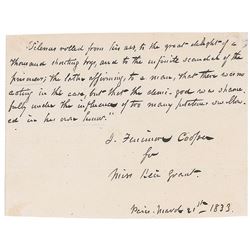 "Silenus rolled from his ass, to the great delight of a
thousand shouting boys, and to the infinite scandal of the
prisoner; the latter affirming, to a man, that there was no
acting in the case, but that the demi-god was shame-
fully under the influence of too many potations swallow-
ed in his own honor."
J. Fenimore Cooper
for
Miss Grant.
Paris. March 21st 1833.